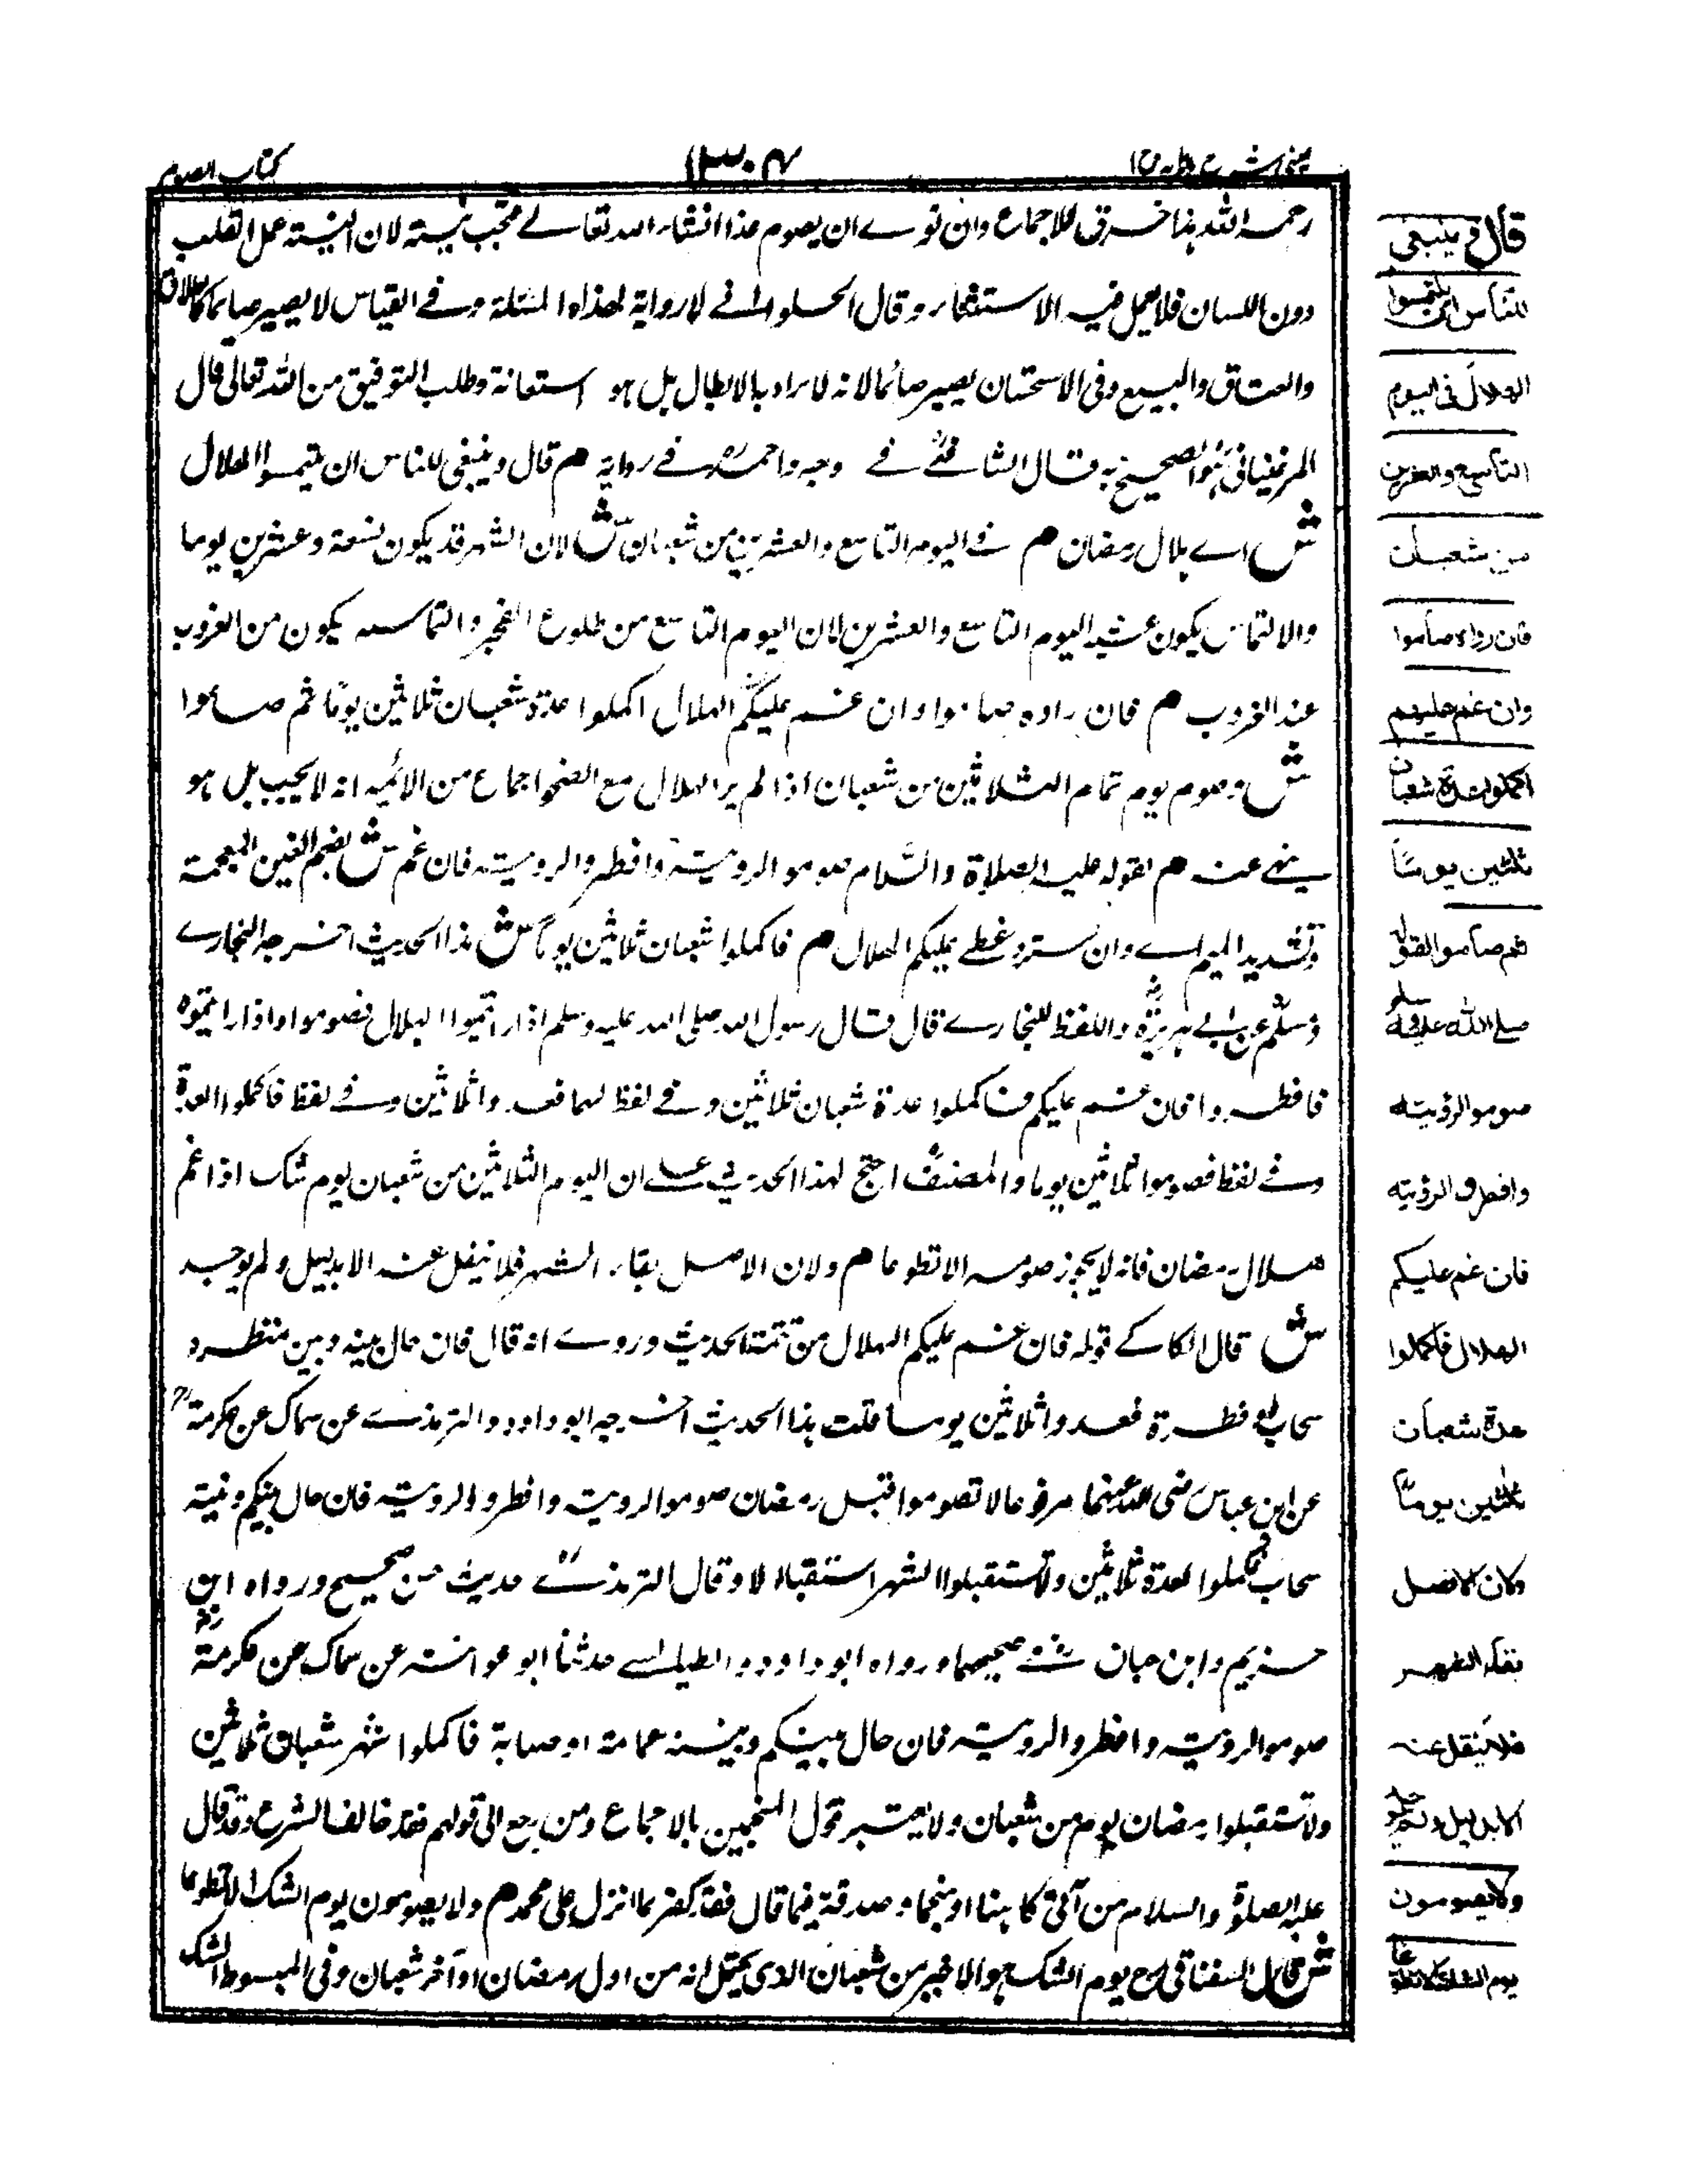 کتاب الصوم
۱۳۰۴
رحمه الله هذا خرق للاجماع وان نوى ان يصوم غدا انشاء الله تعالے نيته لان النية عمل القلب
دون اللسان فلا يعمل فيه الاستثناء وقال الحلوانے لا رواية لهذه المسئلة وفے القياس لا يصير صائما كالطلاق
والعتاق والبيع وفى الاستحسان يصير صائما لانه لا يراد به الابطال بل هو استعانة وطلب التوفيق من الله تعالى قال
المرغينانى هو الصحيح به قال الشافعے فے وجه واحمد فے رواية م قال وينبغى للناس ان يلتمسوا الهلال
ش اے هلال رمضان م فے اليوم التاسع والعشرين من شعبان ش لان الشهر قد يكون تسعة وعشرين يوما
والالتماس يكون عشية اليوم التاسع والعشرين لان اليوم التاسع من طلوع الفجر والتماسه يكون من الغروب
عند الغروب م فان راوه صاموا وان غم عليكم الهلال اكملوا عدة شعبان ثلاثين يوما ثم صاموا
ش وصوم يوم تمام الثلاثين من شعبان اذا لم ير الهلال مع الصحو اجماع من الائمه انه لا يجب بل هو
ينهے عنه م لقوله عليه الصلاة والسلام صوموا لرويته وافطروا لرويته فان غم ش بضم الغين المعجمة
وتشديد الميم اے وان ستر وغطے عليكم الهلال م فاكملوا شعبان ثلاثين يوما ش هذا الحديث اخرجه البخارے
ومسلم عن ابے هريرة واللفظ للبخارے قال قال رسول الله صلى الله عليه وسلم اذا رايتموا الهلال فصوموا واذا رايتموه
فافطروا فان غم عليكم فاكملوا عدة شعبان ثلاثين وفے لفظ لهما فعدوا ثلاثين وفے لفظ فاكملوا العدة
وفے لفظ فصوموا ثلاثين يوما والمصنف احتج لهذا الحديث علے ان اليوم الثلاثين من شعبان يوم شك اذا غم
هلال رمضان فانه لا يجوز صومه الا تطوعا م ولان الاصل بقاء الشهر فلا ينقل عنه الا بدليل ولم يوجد
ش قال الكاكے قوله فان غم عليكم الهلال من تتمة الحديث وروے انه قال فان حال بينه وبين منظره
سحاب او قطرة فعدوا ثلاثين يوما قلت هذا الحديث اخرجه ابو داود والترمذے عن سماك عن عكرمة
عن ابن عباس رضى الله عنهما مرفوعا لا تصوموا قبل رمضان صوموا لرويته وافطروا لرويته فان حال بينكم وبينه
سحاب فكملوا العدة ثلاثين ولا تستقبلوا الشهر استقبالا وقال الترمذے حديث حسن صحيح ورواه ابن
خزيم وابن حبان فے صحيحهما ورواه ابو داود الطيالسے حدثنا ابو عوانة عن سماك عن عكرمة
صوموا لرؤيته وافطروا لرويته فان حال بينكم وبينه غمامة او ضبابة فاكملوا شهر شعبان ثلاثين
ولا تستقبلوا رمضان بيوم من شعبان ولا يعتبر قول المنجمين بالاجماع ومن رجع الى قولهم فقد خالف الشرع وقد قال
عليه الصلوة والسلام من آتى كاهنا او منجما وصدقه فيما قال فقد كفر بما انزل على محمد م ولا يصومون يوم الشك الا تطوعا
ش قال السغناقى رح يوم الشك هو الاخير من شعبان الذى يحتمل انه من اول رمضان او آخر شعبان وفى المبسوط الشك
قال وينبغى
للناس ان يلتمسوا
الهلال فى اليوم
التاسع والعشرين
من شعبان
فان رواه صاموا
وان غم عليهم
اكملوا عدة شعبان
ثلثين يوما
ثم صاموا لقوله
صلے الله عليه وسلم
صوموا لرؤيته
وافطروا لرؤيته
فان غم عليكم
الهلال فاكملوا
عدة شعبان
ثلثين يوما
ولان الاصل
بقاء الشهر
فلا ينقل عنه
الا بدليل ولم يوجد
ولا يصومون
يوم الشك الا تطوعا